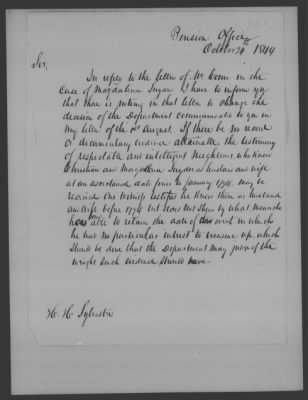 Pension Office
October 4th 1844
Sir,
In reply to the letter of Mr. in the
Case of Magdalena Snyder I have to inform you
that there is nothing in that letter to change the
decision of the Department communicated to you in
my letter of the 2d August. If there be no record
or documentary evidence attainable the testimony
of respectable and intelligent Neighbours, who knew
Christian and Magdalena Snyder as husband and wife
at an ascertained date prior to January 1794, may be
received. One witness testifies he knew them as husband
and wife before 1794 but does not shew by what means he
has been able to retain the date of this event in which
he had no particular interest to treasure up, which
should be done that the Department may judge of the
weight such evidence should have.
H. H. Sylvester